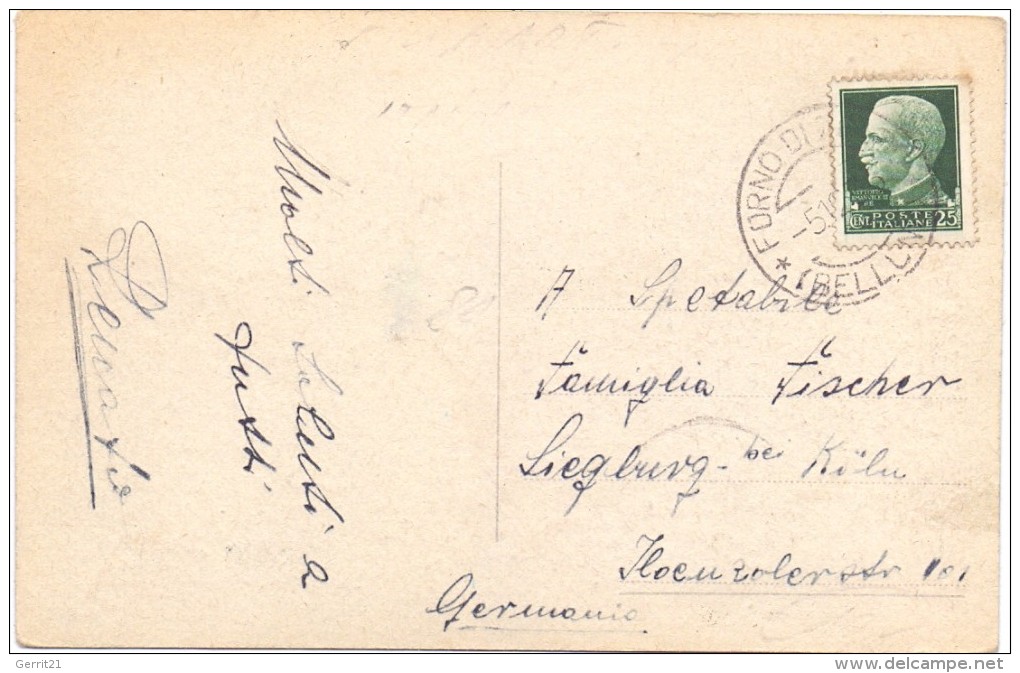 Molti Saluti a
tutti
Renato
FORNO DI
-5.1
* (BELLUN
VITTORIO
EMANVELE III
RE
CENT. POSTE 25
ITALIANE
A Spetabile
Famiglia Fischer
Siegburg - bei Köln
Hoenzolerstr 101
Germania
Gerrit21
www.delcampe.net